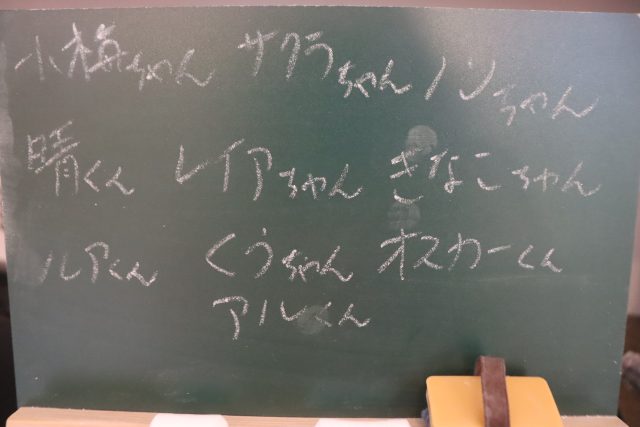 小梅ちゃん サクラちゃん ノンちゃん
晴くん レイアちゃん きなこちゃん
ルアくん くうちゃん オスカーくん
アルくん